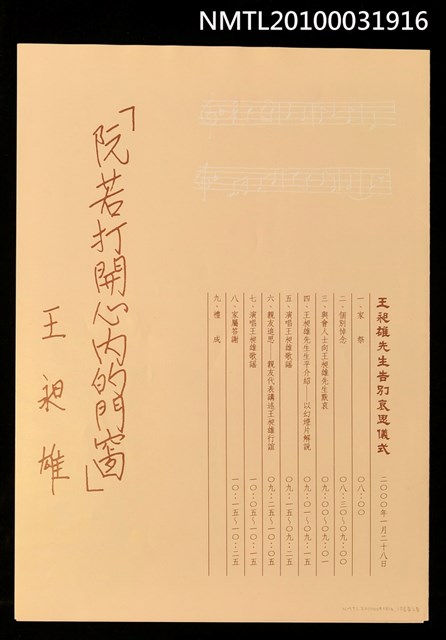 NMTL20100031916
王昶雄先生告別哀思儀式 二〇〇〇年一月二十八日
一、家 祭 〇八:〇〇
二、個別悼念 〇八:三〇~〇九:〇〇
三、與會人士向王昶雄先生默哀 〇九:〇〇~〇九:〇一
四、王昶雄先生生平介紹——以幻燈片解說 〇九:〇一~〇九:一五
五、演唱王昶雄歌謠 〇九:一五~〇九:二五
六、親友追思——親友代表講述王昶雄行誼 〇九:二五~一〇:〇五
七、演唱王昶雄歌謠 一〇:〇五~一〇:一五
八、家屬答謝 一〇:一五~一〇:二五
九、禮 成
「阮若打開心內的門窗」
王昶雄